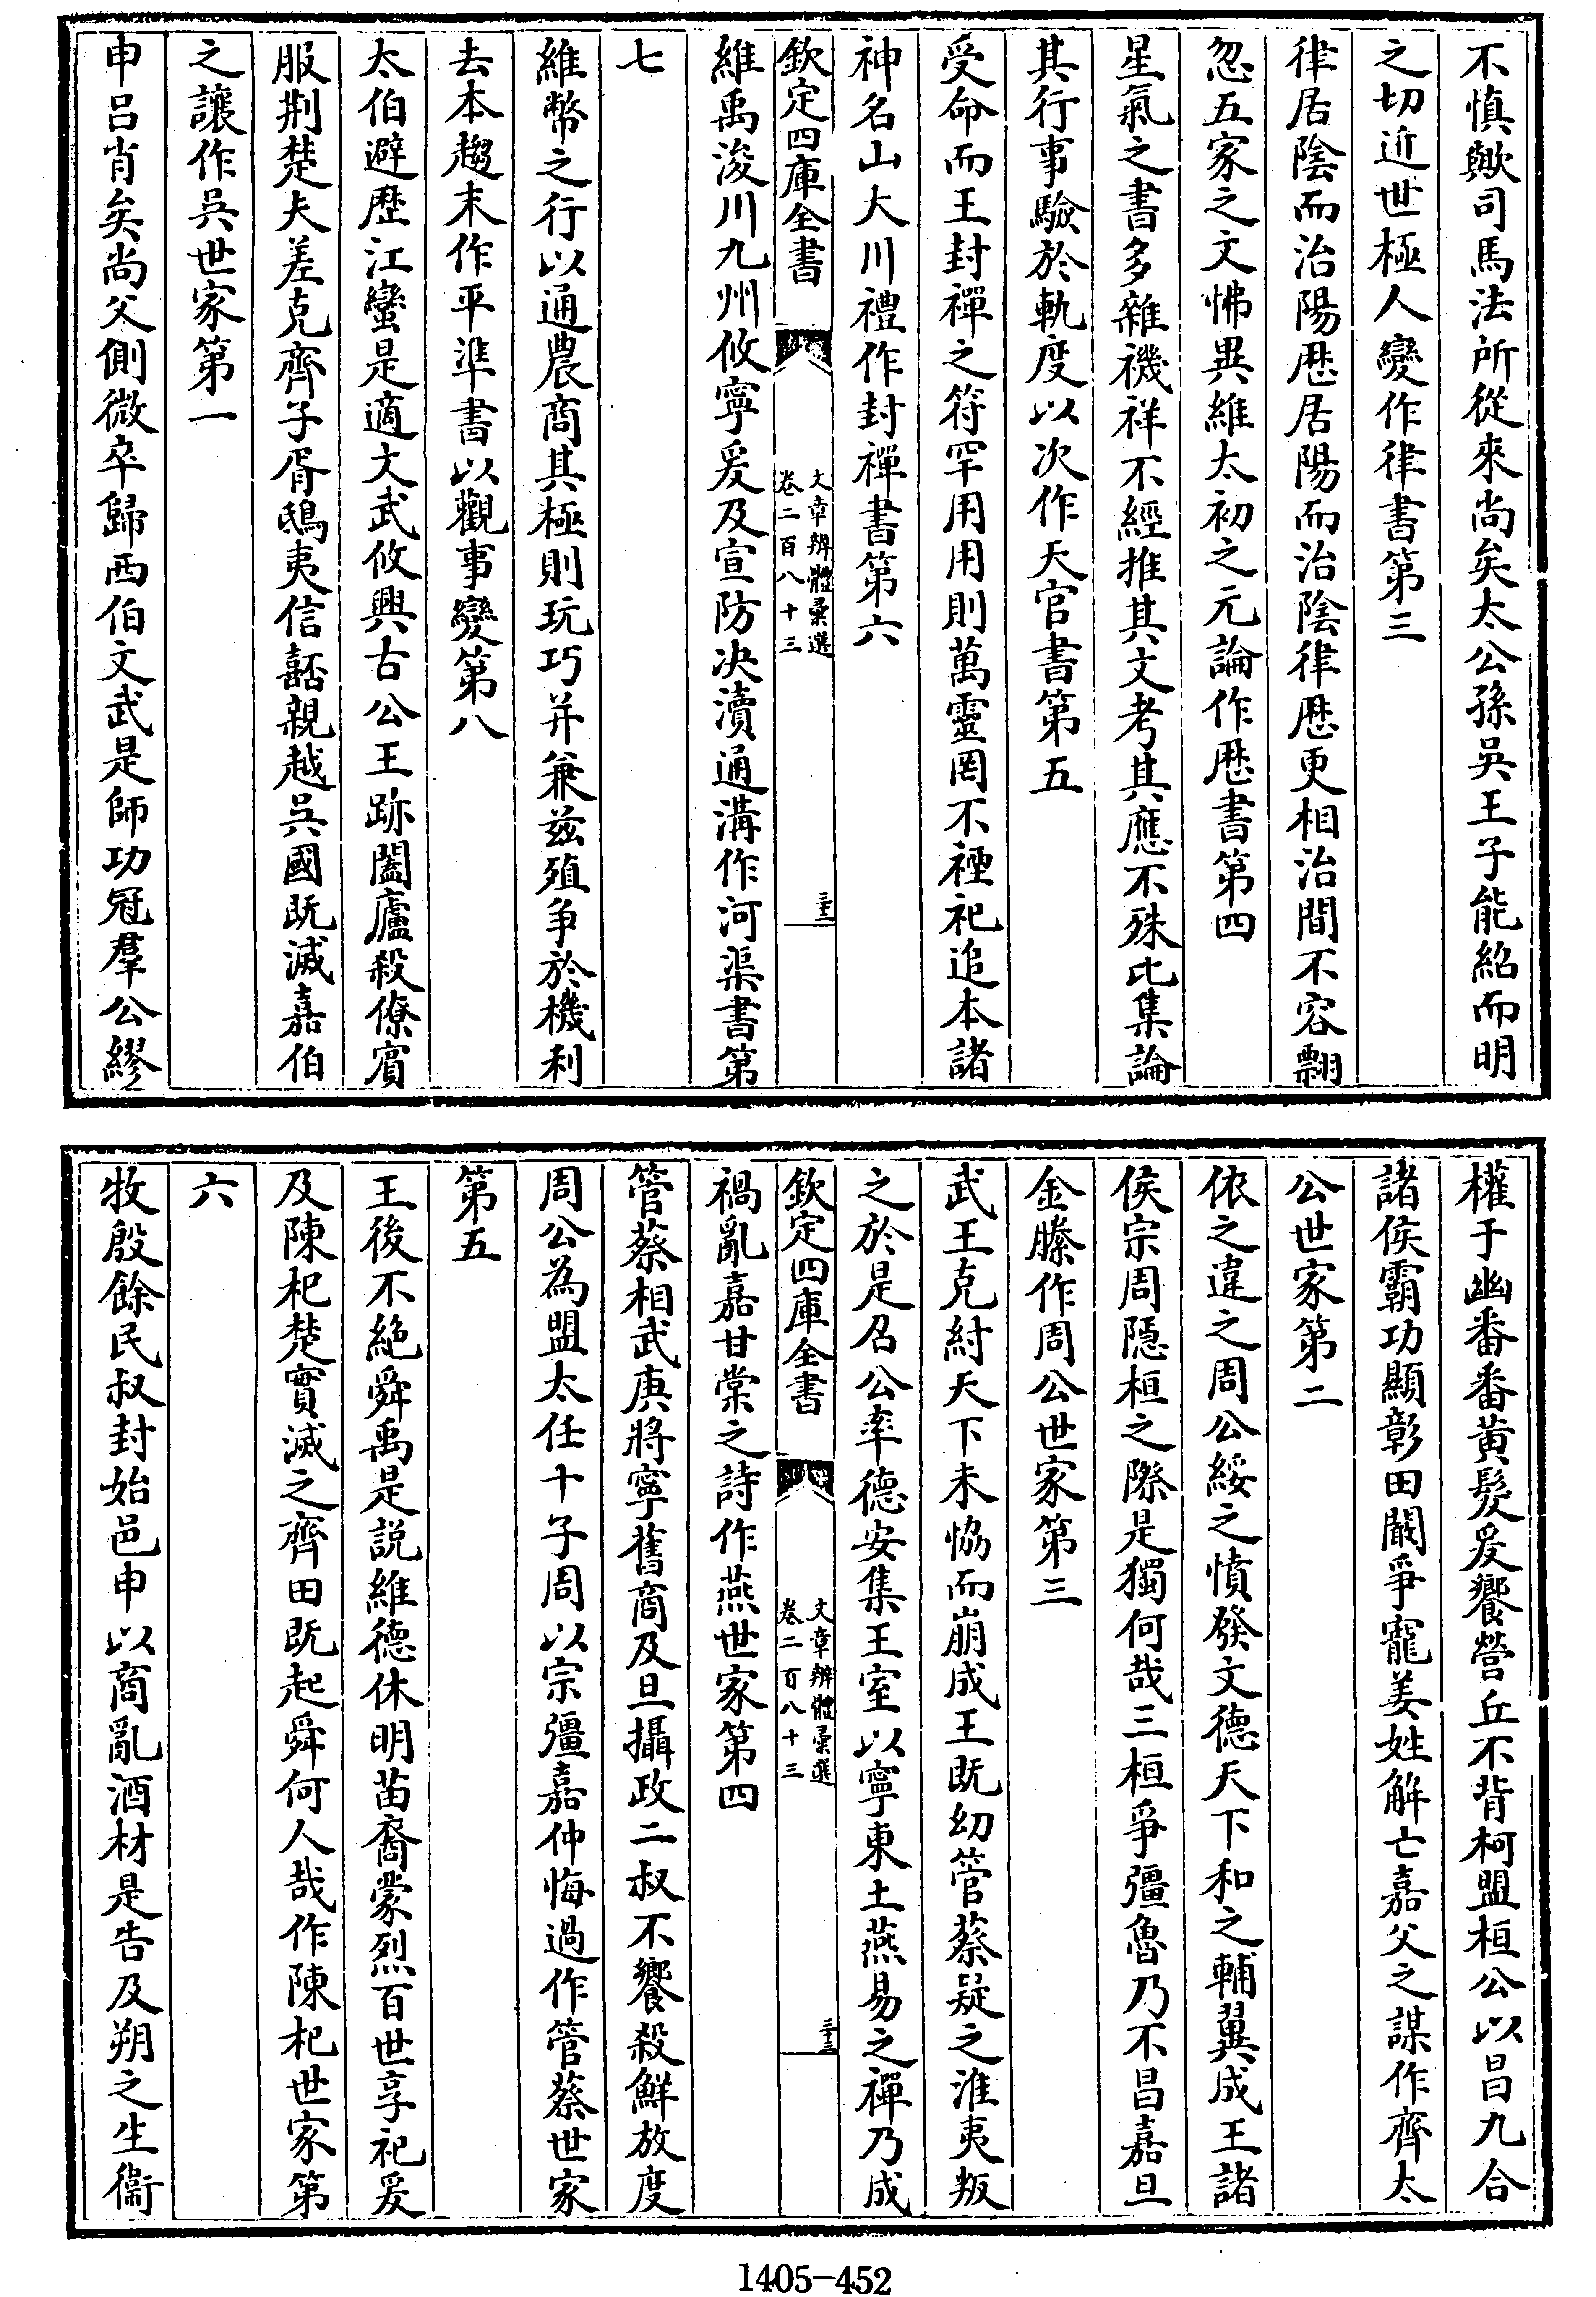 不慎歟司馬法所從來尚矣太公孫吳王子能紹而明
之切近世極人變作律書第三
律居陰而治陽厯居陽而治陰律厯更相治間不容翲
忽五家之文怫異維太初之元論作厯書第四
星氣之書多雜禨祥不經推其文考其應不殊比集論
其行事驗於軌度以次作天官書第五
受命而王封禪之符罕用用則萬靈罔不禋祀追本諸
神名山大川禮作封禪書第六
欽定四庫全書
文章辨體彙選
卷二百八十三
三十二
維禹浚川九州攸寧爰及宣防決瀆通溝作河渠書第
七
維幣之行以通農商其極則玩巧并兼兹殖争於機利
去本趨末作平準書以觀事變第八
太伯避歴江蠻是適文武攸興古公王跡闔廬殺僚賓
服荆楚夫差克齊子胥鴟夷信嚭親越吳國既滅嘉伯
之讓作吳世家第一
申呂肖矣尚父側微卒歸西伯文武是師功冠羣公繆
權于幽番番黄髮爰饗營丘不背柯盟桓公以昌九合
諸侯霸功顯彰田闞爭寵姜姓解亡嘉父之謀作齊太
公世家第二
依之違之周公綏之憤發文德天下和之輔翼成王諸
侯宗周隱桓之際是獨何哉三桓爭彊魯乃不昌嘉旦
金縢作周公世家第三
武王克紂天下未恊而崩成王既幼管蔡疑之淮夷叛
之於是召公率德安集王室以寧東土燕易之禪乃成
欽定四庫全書
文章辨體彙選
卷二百八十三
三十三
禍亂嘉甘棠之詩作燕世家第四
管蔡相武庚將寧舊商及旦攝政二叔不饗殺鮮放度
周公為盟太任十子周以宗彊嘉仲悔過作管蔡世家
第五
王後不絶舜禹是説維德休明苗裔蒙烈百世享祀爰
及陳杞楚實滅之齊田既起舜何人哉作陳杞世家第
六
牧殷餘民叔封始邑申以商亂酒材是告及朔之生衞
1405-452